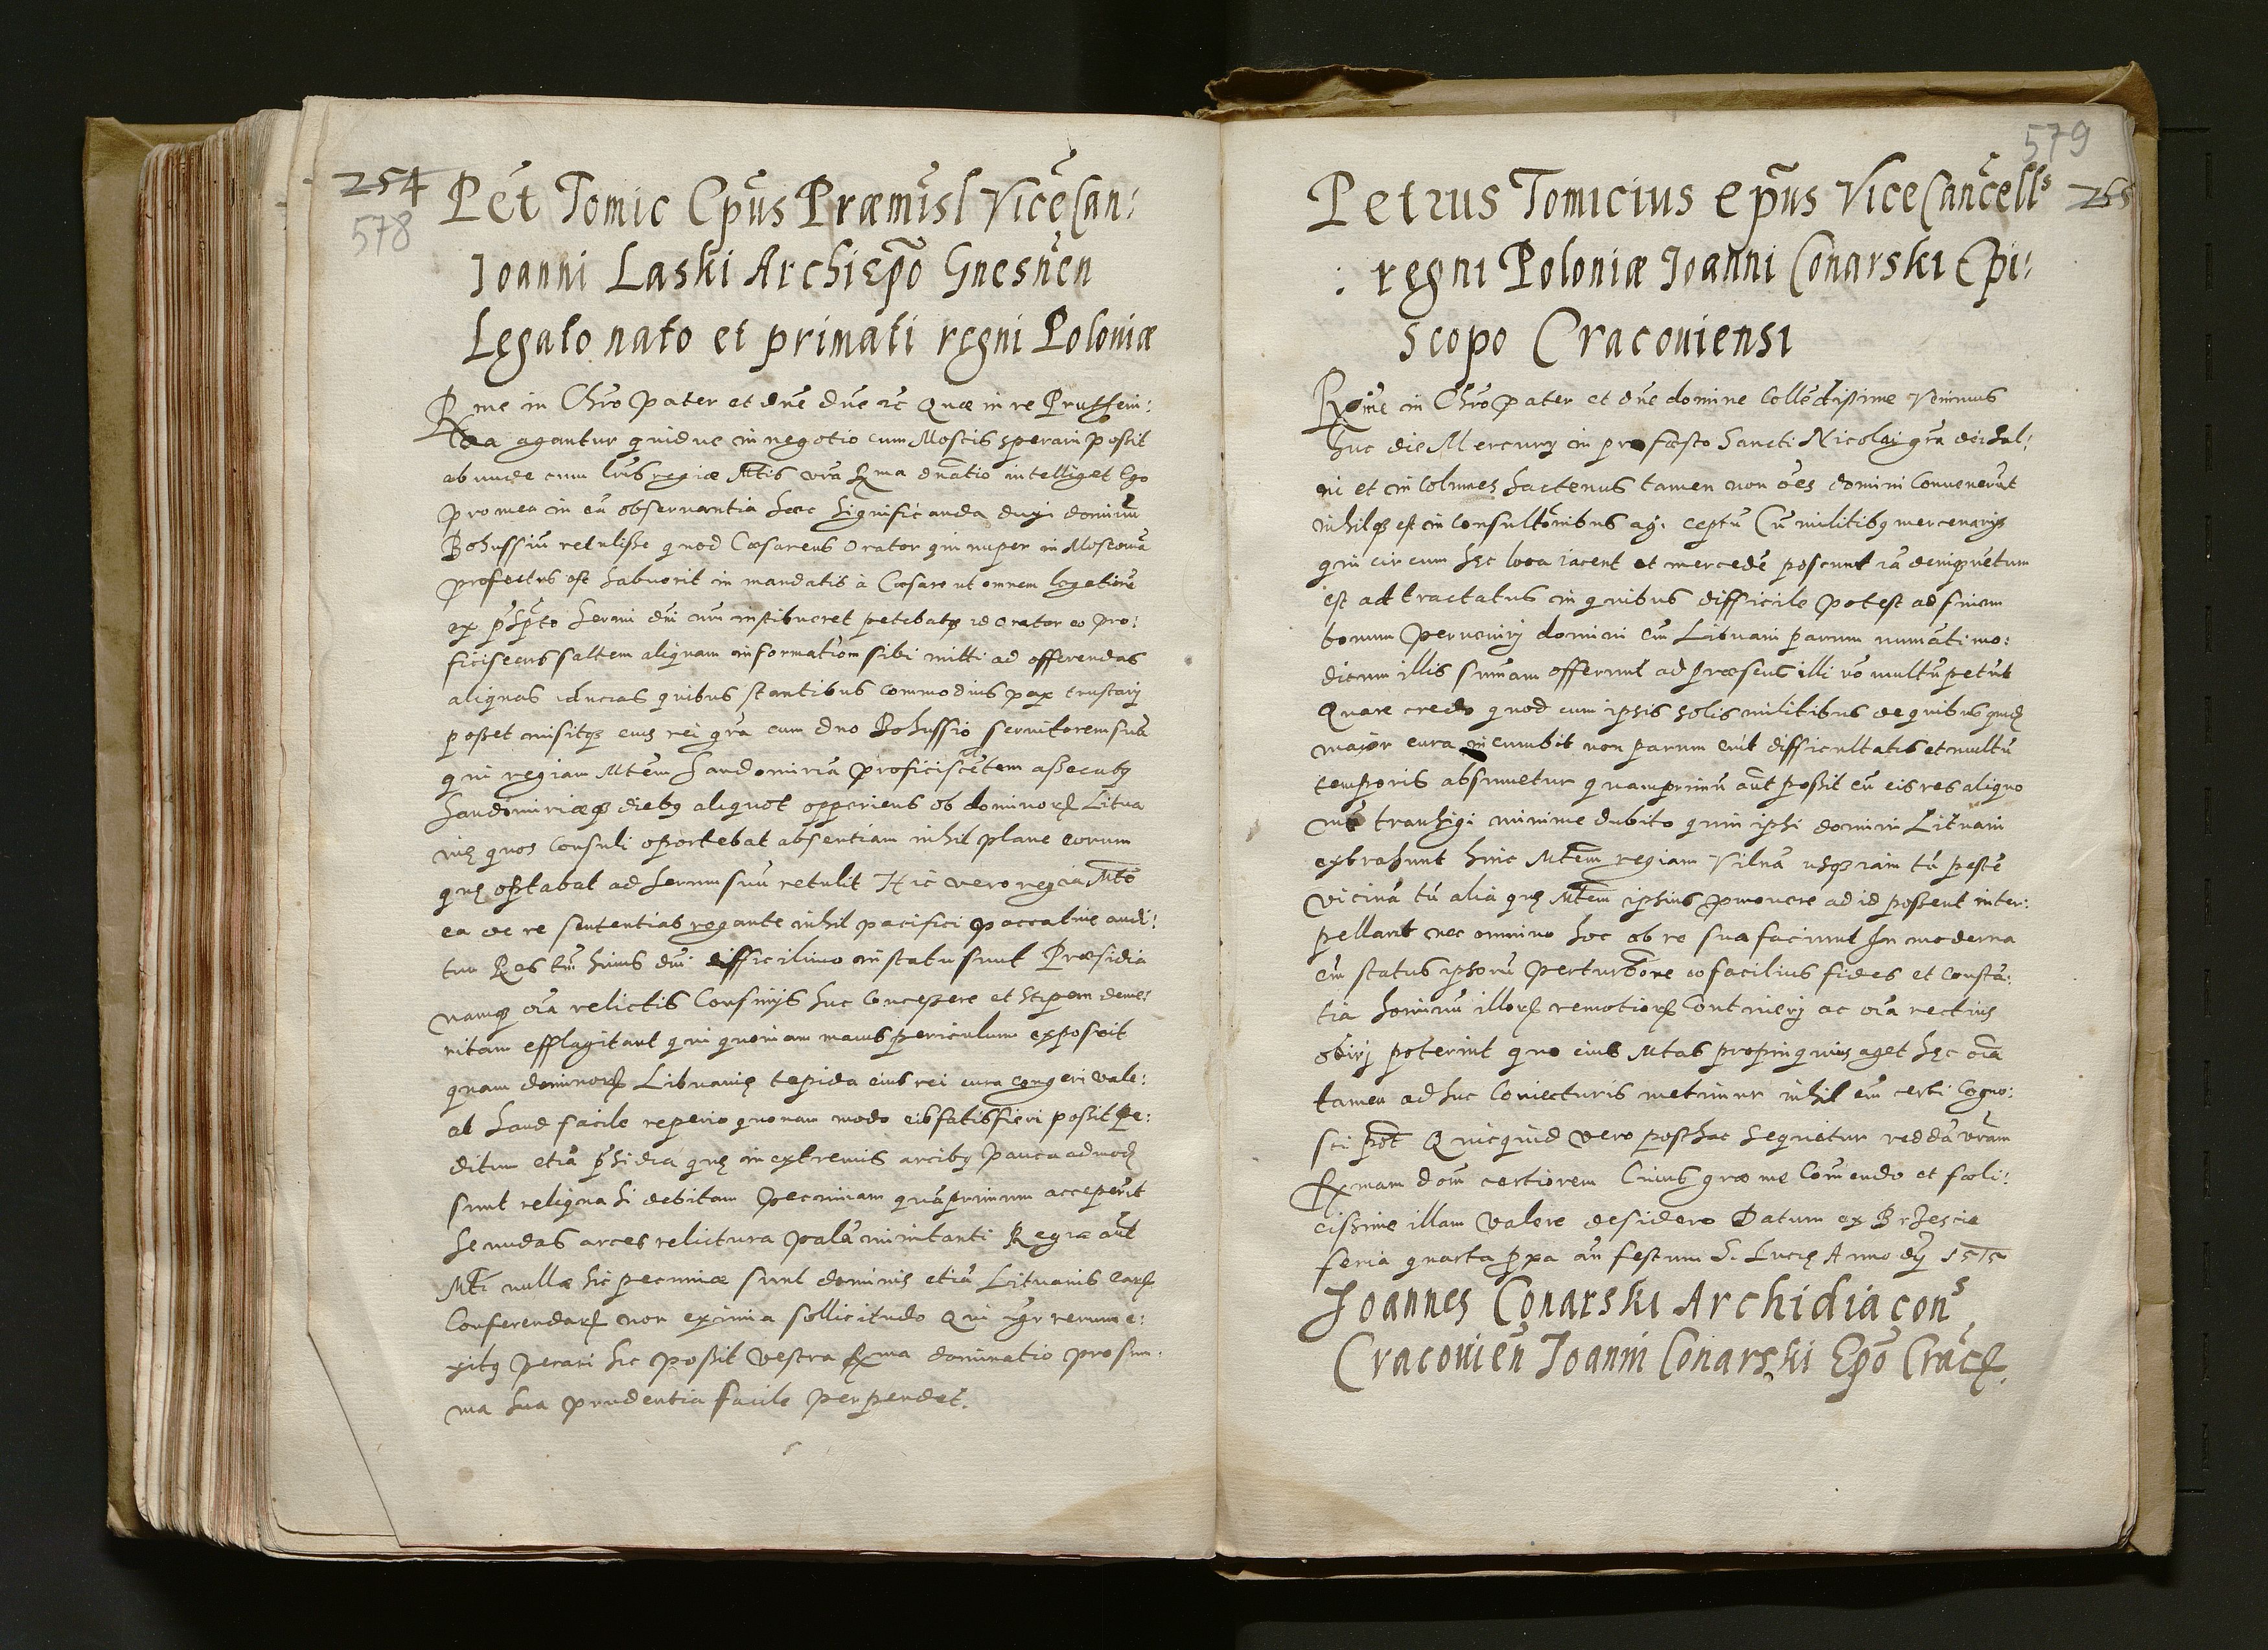 254
578
Pet̄ Tomic Ep̄us Præmisl Vice Can:
Joanni Laski Archiep̄o Gnesnen̄
Legato nato et primati regni Poloniæ
Rme in Chr̄o pater et dn̄e dn̄e &c Quæ in re Prussein:
agantur quidue in negotio cum Moscis sperari possit
ab unde cum lr̄is regiæ Mt̄is vr̄a Rma dn̄atio intelliget Ego
pro mea in eā obseruantia hæc significanda duxi dominū
Bohussiū retulisse quod Cæsareus Orator qui nuper in Moscouiā
profectus est habuerit in mandatis à Cæsare ut omnem legationē
ex p̄s̄p̄to Sermi dn̄i nr̄i institueret petebatq̧ is Orator eo pro:
ficiscens saltem aliquam informatiōm sibi mitti ad offerendas
aliquas inducias quibus stantibus commodius pax tractari
posset misitq̧ eius rei gr̄a cum dno Bohussio seruitorem suū
qui regiam Mtem̄ Sandomiriā proficiscētem assecutꝫ
Sandomiriæq̧ diebꝫ aliquot opperiens ob dominoꝝ Litua
nię quos consuli oportebat absentiam nihil plane eorum
quę optabat ad herum suū retulit Hic vero regia Mt̄e
ea de re sententias rogante nihil pacifici paccatiue audi:
tur Res tm̄ huius dn̄i difficilimo in statu sunt Præsidia
namq̧ oīa relictis confinijs huc concessere et stipem deme:
ritam efflagitant qui quoniam maius periculum exposcit
quam dominoꝝ Lituanię tepida eius rei cura congeri vale:
at haud facile reperio quonam modo eis satisfieri possit Pe:
ditum etiā p̄sidia quę in extremis arcibꝫ pauca admodꝫ
sunt reliqua si debitam pecuniam quāprimum acceperīt
se nudas arces relictura palā minitanti Regiæ aūt
Mt̄i nullæ hic pecuniæ sunt dominis etiā Lituanis eaꝝ
conferendaꝝ non eximia sollicitudo Qui igr̄ rerum e:
xitꝫ sperari hic possit vestra Rma dominatio pro sum:
ma sua prudentia facile perpendet.
579
265
Petrus Tomicius ep̄us ViceCancells
regni Poloniæ Joanni Conarski Epi:
scopo Cracouiensi
Rome in Chr̄o pater et dn̄e domine collēdissime venimus
huc die Mercurij in profæsto Sancti Nicolai gr̄a dei sal:
ui et incolumes hactenus tamen non oēs domini conuenerūt
nihilq̧ est in consultōnibus ag: ceptū Cū militibꝫ mercenarijs
qui circum hęc loca iacent et mercedē poscunt iā deniq̧ uētum
est ad tractatus in quibus difficile potest ad finem
bonum peruenirj domini em̄ Lituani parum numāti mo:
dicum illis summam offerunt ad præsens illi vō multū petūt
Quare credo quod cum ipsis solis militibus de quibus quidꝫ
maior cura incumbit non parum erit difficultatis et multū
temporis absumetur quamprimū aūt possit cū eis res aliquo
mō transigi minime dubito quin ipsi domini Lituani
extrahunt hinc Mtem̄ regiam Vilnā usq̧ iam tū pestē
vicinā tū alia quę Mtem̄ ipsius pmouere ad id possent inter:
pellant nec omnino hoc ob re sua faciunt In moderna
em̄ status ipsorū perturbōne eo facilius fides et constā:
tia hominū illoꝝ remotioꝝ contineri ac oīa rectius
obirj poterint quo eius Mtas propinquius aget hęc oīa
tamen adhuc coniecturis metimur nihil em̄ certi cogno:
sci pōt Quicquid vero posthac sequetur reddā vr̄am
Rxmam dom̄ certiorem Cuius græ me comendo et fœli:
cissime illam valere desidero Datum ex Brzescie
feria quarta p̄xa an̄ festum S. Lucię Anno dn̄j 1515
Joannes Conarski Archidiacons
Cracouien̄ Joanni Conarski Ep̄o Cracꝝ.